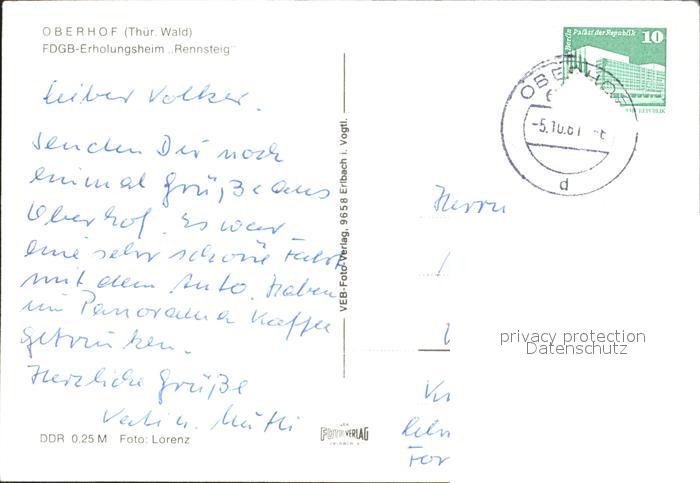 OBERHOF (Thür. Wald)
FDGB-Erholungsheim „Rennsteig"
Lieber Volker.
Senden Dir noch
einmal Grüße aus
Oberhof. Es war
eine sehr schöne Fahrt
mit dem Auto. Haben
im Panorama Kaffee
getrunken.
Herzliche Grüße
Vati u. Mutti
DDR 0.25 M Foto: Lorenz
VEB-Foto-Verlag, 9658 Erlbach i. Vogtl.
FOTO VERLAG
Berlin Palast der Republik 10
OBERHOF
-5.10.81
d
Herrn
privacy protection
Datenschutz